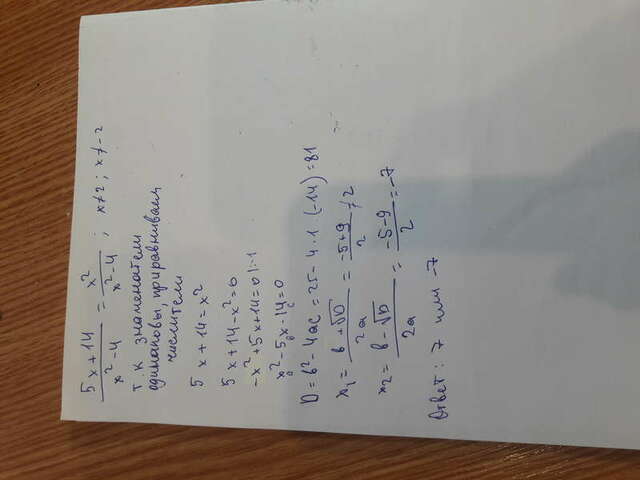 5x+14/x²-4 = x²/x²-4 ; x≠2 ; x≠-2
т.к знаменатели
одинаковы, приравниваем
числители
5x+14=x²
5x+14-x²=0
-x²+5x+14=0 |:-1
x²-5x-14=0
a b c
D=b²-4ac=25-4·1·(-14)=81
x₁= b+√D/2a = -5+9/2 ≠2
x₂= b-√D/2a = -5-9/2 =-7
Ответ: 7 или -7